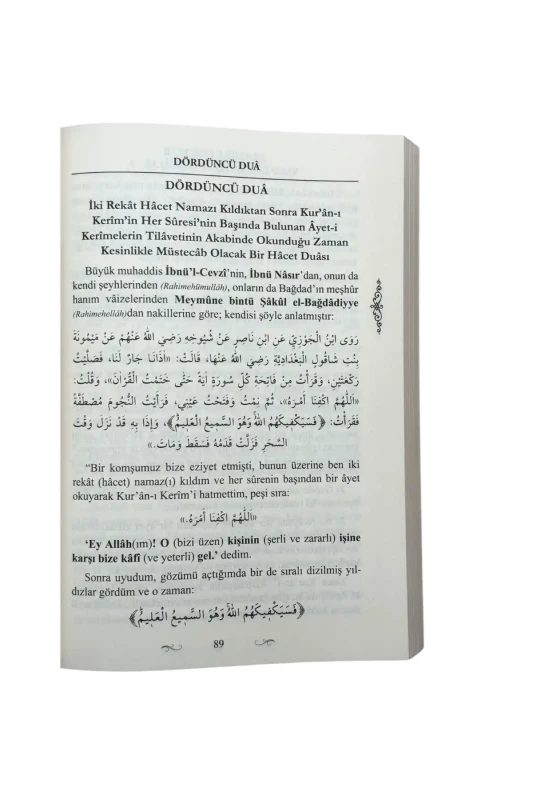 DÖRDÜNCÜ DUÂ
DÖRDÜNCÜ DUÂ
İki Rekât Hâcet Namazı Kıldıktan Sonra Kur’ân-ı
Kerîm’in Her Sûresi’nin Başında Bulunan Âyet-i
Kerîmelerin Tilâvetinin Akabinde Okunduğu Zaman
Kesinlikle Müstecâb Olacak Bir Hâcet Duâsı
Büyük muhaddis İbnü’l-Cevzî’nin, İbnü Nâsır’dan, onun da
kendi şeyhlerinden (Rahimehümullâh), onların da Bağdad’ın meşhûr
hanım vâizelerinden Meymûne bintü Şâkûl el-Bağdâdiyye
(Rahimehellâh)dan nakillerine göre; kendisi şöyle anlatmıştır:
رَوَى ابْنُ الْجَوْزِيِّ عَنِ ابْنِ نَاصِرٍ عَنْ شُيُوخِهِ رَضِيَ اللّٰهُ عَنْهُمْ عَنْ مَيْمُونَةَ
بِنْتِ شَاقُولَ الْبَغْدَادِيَّةِ رَضِيَ اللّٰهُ عَنْهَا، قَالَتْ: «اٰذَانَا جَارٌ لَنَا، فَصَلَّيْتُ
رَكْعَتَيْنِ، وَقَرَأْتُ مِنْ فَاتِحَةِ كُلِّ سُورَةٍ اٰيَةً حَتّٰى خَتَمْتُ الْقُرْاٰنَ»، وَقُلْتُ:
«اَللّٰهُمَّ اكْفِنَا أَمْرَهُ»، ثُمَّ نِمْتُ وَفَتَحْتُ عَيْنِي، فَرَأَيْتُ النُّجُومَ مُصْطَفَّةً
فَقَرَأْتُ: ﴿فَسَيَكْفِيكَهُمُ اللّٰهُ وَهُوَ السَّمِيعُ الْعَلِيمُ﴾، وَإِذَا بِهِ قَدْ نَزَلَ وَقْتَ
السَّحَرِ فَزَلَّتْ قَدَمُهُ فَسَقَطَ وَمَاتَ.»
“Bir komşumuz bize eziyet etmişti, bunun üzerine ben iki
rekât (hâcet) namaz(ı) kıldım ve her sûrenin başından bir âyet
okuyarak Kur’ân-ı Kerîm’i hatmettim, peşi sıra:
«اَللّٰهُمَّ اكْفِنَا أَمْرَهُ.»
‘Ey Allâh(ım)! O (bizi üzen) kişinin (şerli ve zararlı) işine
karşı bize kâfî (ve yeterli) gel.’ dedim.
Sonra uyudum, gözümü açtığımda bir de sıralı dizilmiş yıl-
dızlar gördüm ve o zaman:
﴿فَسَيَكْفِيكَهُمُ اللّٰهُ وَهُوَ السَّمِيعُ الْعَلِيمُ﴾
89